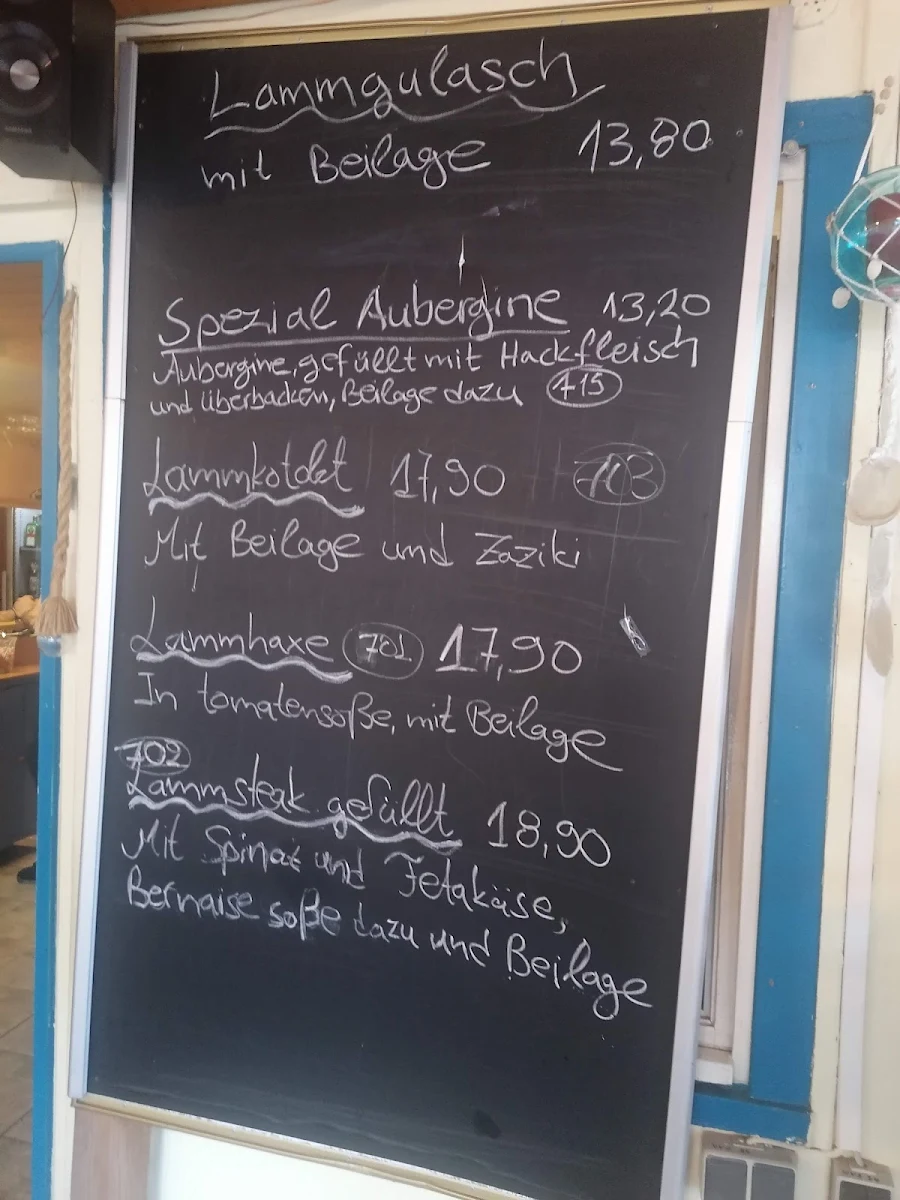 Lammgulasch
mit Beilage 13,80
Spezial Aubergine 13,20
Aubergine, gefüllt mit Hackfleisch
und überbacken, Beilage dazu 715
Lammkotelet 17,90
Mit Beilage und Zaziki
Lammhaxe 701 17,90
In tomatensoße, mit Beilage
702
Lammsteak gefüllt 18,90
Mit Spinat und Fetakäse,
Bernaise soße dazu und Beilage